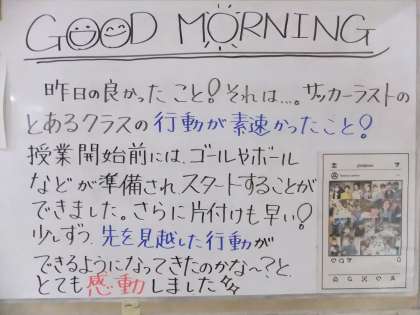 GOOD MORNING
昨日の良かったこと!それは…。サッカーラストの
とあるクラスの行動が素速かったこと!
授業開始前には、ゴールやボール
などが準備され、スタートすることが
できました。さらに片付けも早い!
少しずつ、先を見越した行動が
できるようになってきたのかな〜?と、
とても感動しました